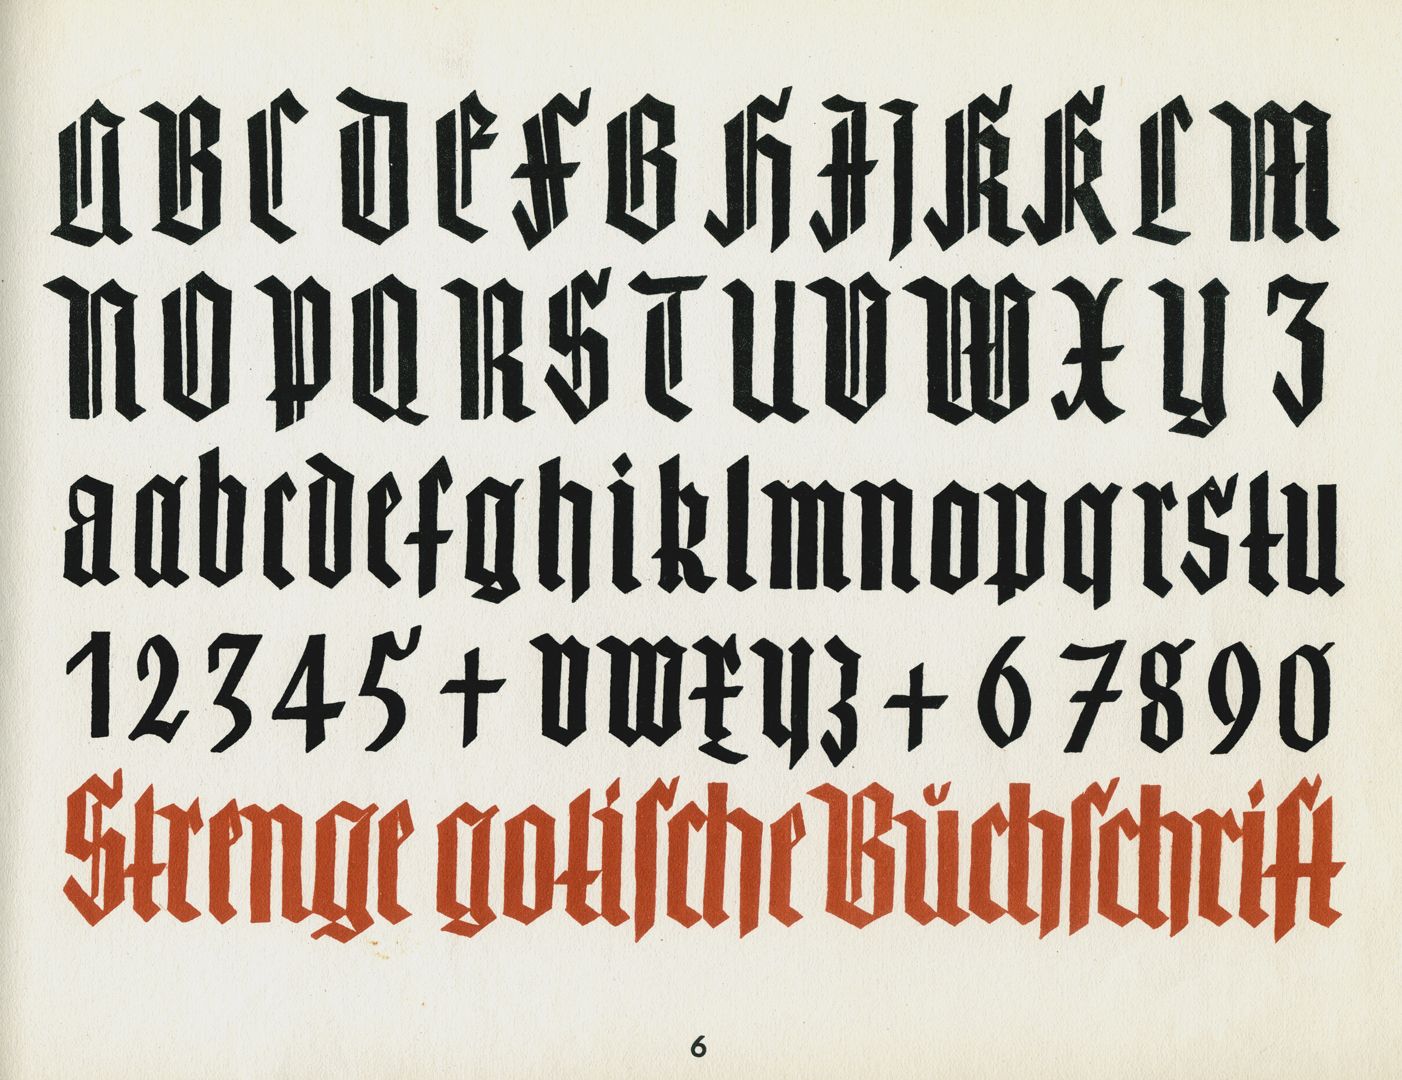 ABCDEFGHIJKKLM
NOPQRSTUVWXYZ
aabcdefghiklmnopqrstu
12345+vwxyz+67890
Strenge gotiſche Bŭchſchrift
6